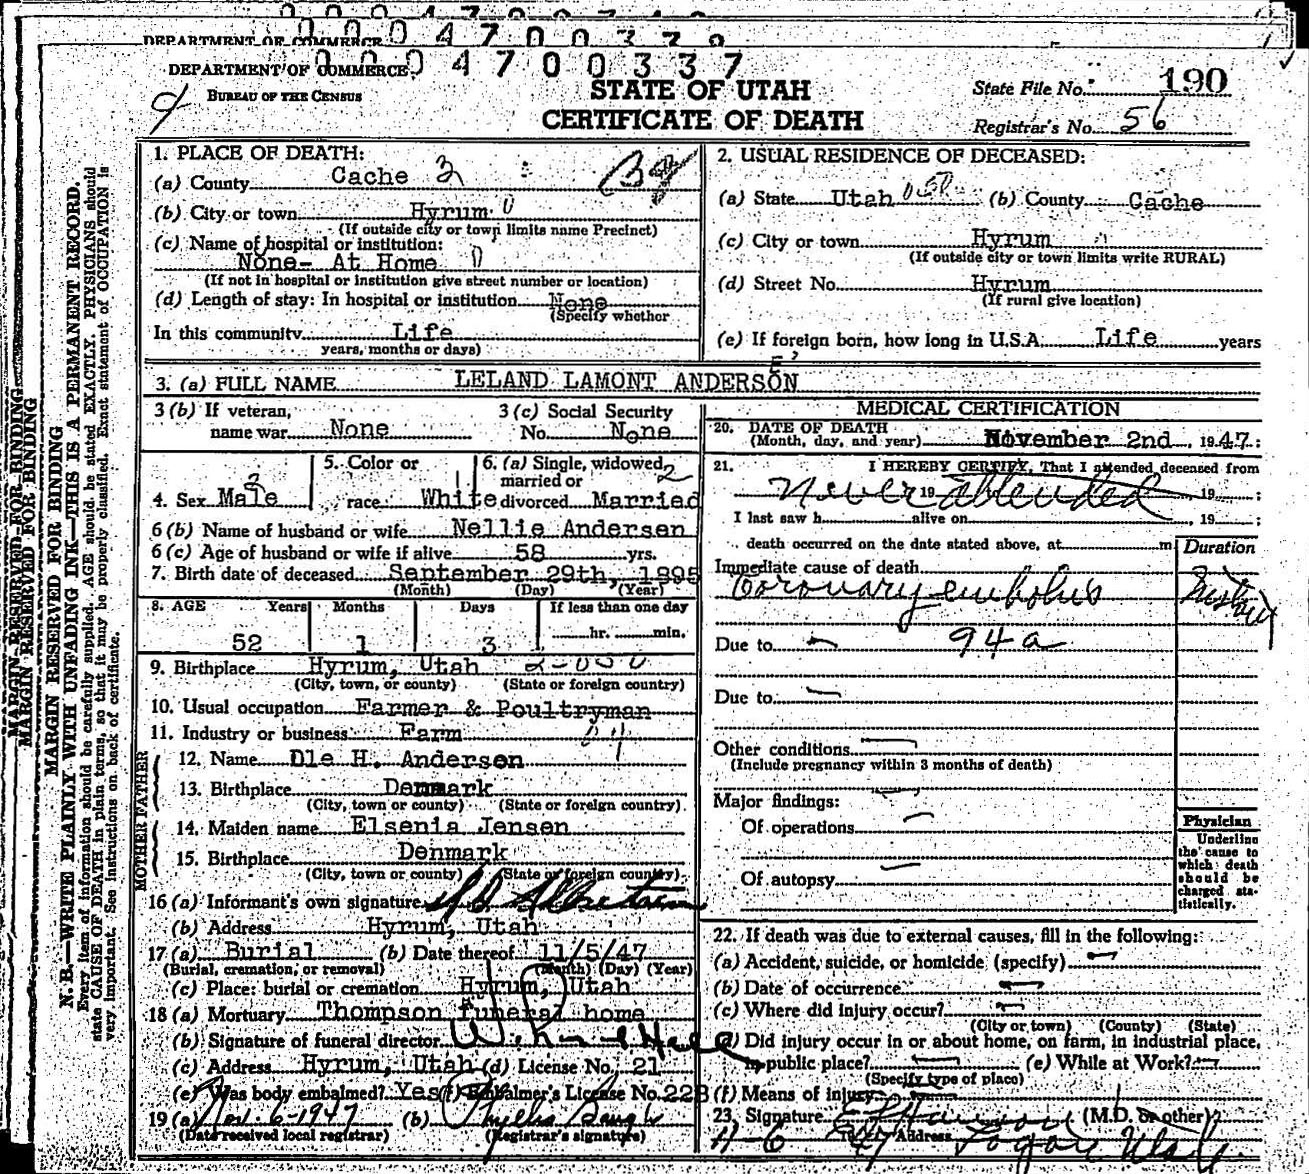 DEPARTMENT OF COMMERCE
0 0 0 4 7 0 0 3 3 7
DEPARTMENT OF COMMERCE
BUREAU OF THE CENSUS
STATE OF UTAH
CERTIFICATE OF DEATH
State File No. 190
Registrar's No. 56
MARGIN RESERVED FOR BINDING
MARGIN RESERVED FOR BINDING
MARGIN RESERVED FOR BINDING
N. B.—WRITE PLAINLY WITH UNFADING INK—THIS IS A PERMANENT RECORD.
Every item of information should be carefully supplied. AGE should be stated EXACTLY. PHYSICIANS should
state CAUSE OF DEATH in plain terms, so that it may be properly classified. Exact statement of OCCUPATION is
very important. See instructions on back of certificate.
1. PLACE OF DEATH:
(a) County Cache 3
(b) City or town Hyrum 0
(If outside city or town limits name Precinct)
(c) Name of hospital or institution:
None- At Home 0
(If not in hospital or institution give street number or location)
(d) Length of stay: In hospital or institution None
(Specify whether
In this community Life
years, months or days)
2. USUAL RESIDENCE OF DECEASED:
(a) State Utah (b) County Cache
(c) City or town Hyrum
(If outside city or town limits write RURAL)
(d) Street No. Hyrum
(If rural give location)
(e) If foreign born, how long in U.S.A. Life years
3. (a) FULL NAME LELAND LAMONT ANDERSON
E
3 (b) If veteran, name war None
3 (c) Social Security No. None
4. Sex Male
5. Color or race White
6. (a) Single, widowed, married or divorced Married
6 (b) Name of husband or wife Nellie Andersen
6 (c) Age of husband or wife if alive 58 yrs.
7. Birth date of deceased September 29th, 1895
(Month) (Day) (Year)
8. AGE Years Months Days If less than one day
52 1 3 hr. min.
9. Birthplace Hyrum, Utah
(City, town, or county) (State or foreign country)
10. Usual occupation Farmer & Poultryman
11. Industry or business Farm
FATHER
12. Name Ole H. Andersen
13. Birthplace Denmark
(City, town or county) (State or foreign country)
MOTHER
14. Maiden name Elsenia Jensen
15. Birthplace Denmark
(City, town or county) (State or foreign country)
16 (a) Informant's own signature
(b) Address Hyrum, Utah
17 (a) Burial (b) Date thereof 11/5/47
(Burial, cremation, or removal) (Month) (Day) (Year)
(c) Place: burial or cremation Hyrum, Utah
18 (a) Mortuary Thompson funeral home
(b) Signature of funeral director
(c) Address Hyrum, Utah (d) License No. 21
(e) Was body embalmed? Yes (f) Embalmer's License No. 228
19 (a) Nov. 6-1947 (b) Phyllis
(Date received local registrar) (Registrar's signature)
MEDICAL CERTIFICATION
20. DATE OF DEATH
(Month, day, and year) November 2nd, 1947
21. I HEREBY CERTIFY, That I attended deceased from
Never attended 19 , 19 ;
I last saw h alive on , 19 ;
death occurred on the date stated above, at m
Duration
Immediate cause of death
Coronary embolus
Due to 94a
Due to
Other conditions
(Include pregnancy within 3 months of death)
Major findings:
Of operations
Of autopsy
Physician
Underline
the cause to
which death
should be
charged sta-
tistically.
22. If death was due to external causes, fill in the following:
(a) Accident, suicide, or homicide (specify)
(b) Date of occurrence
(c) Where did injury occur?
(City or town) (County) (State)
(d) Did injury occur in or about home, on farm, in industrial place,
in public place? (e) While at Work?
(Specify type of place)
(f) Means of injury
23. Signature (M.D. or other)
11-6 47 Address Logan Utah